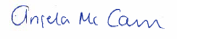 Angela Mc Cann